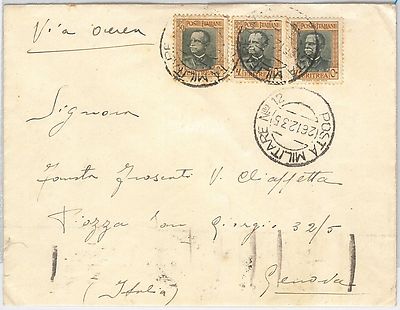 Via aerea
POSTE ITALIANE POSTE ITALIANE POSTE ITALIANE
ERITREA
POSTA MILITARE
POSTA MILITARE Nº 12
26 12 35
Signora
Fausta V. Chiaffetta
Piazza San Giorgio 32/5
(Italia) Genova